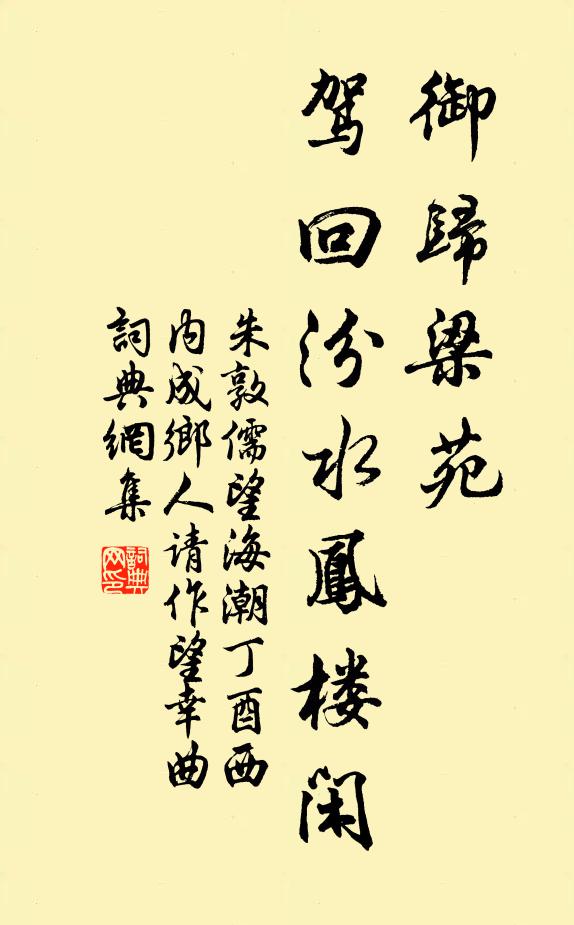 御歸梁苑
驾回汾水鳳楼闲
朱敦儒望海潮丁酉西
内成鄉人请作望幸曲
詞典網集
詞典网印